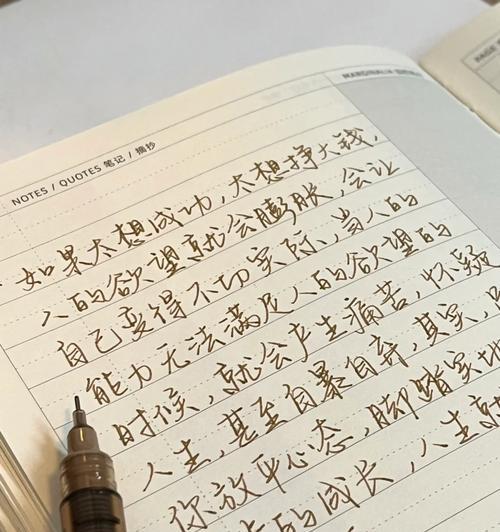 NOTES / QUOTES 笔记 / 摘抄
MARGINALIA
如果太想成功,太想挣大钱,
人的欲望就会膨胀,会让
自己变得不切实际,当人的
能力无法满足人的欲望的
时候,就会产生痛苦,怀疑
人生,甚至自暴自弃,其实,
你放平心态,脚踏实地
的成长,人生就